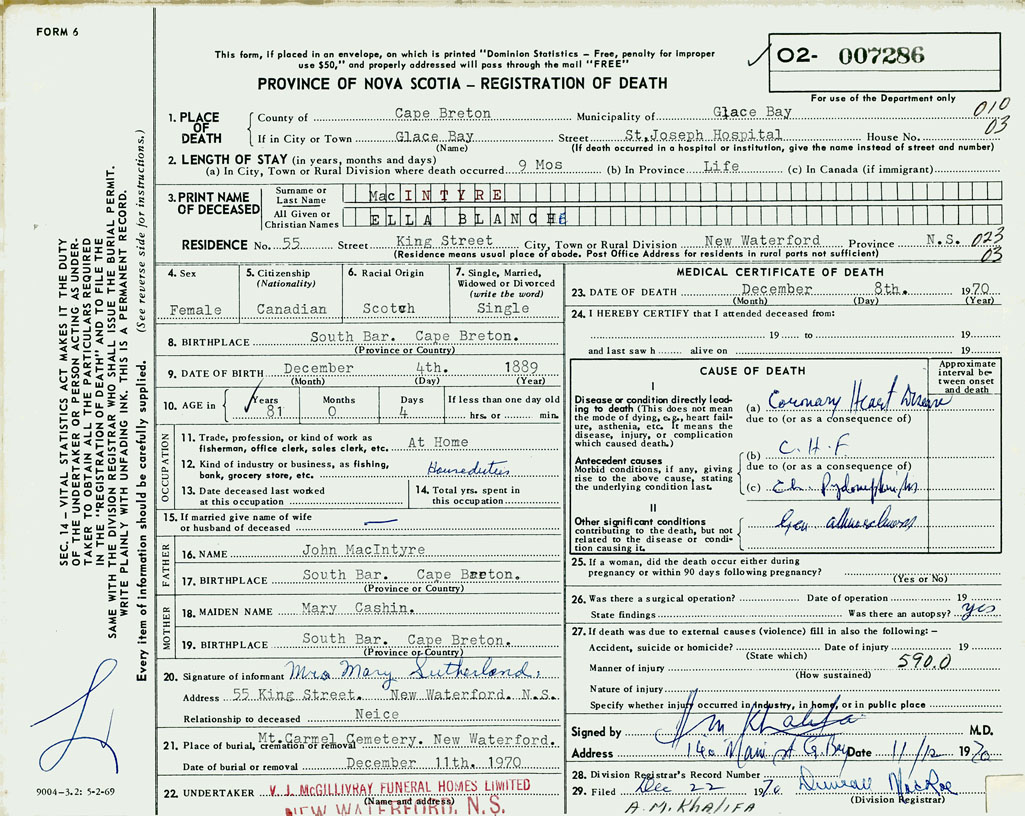 FORM 6
This form, if placed in an envelope, on which is printed "Dominion Statistics – Free, penalty for improper
use $50," and properly addressed will pass through the mail "FREE"
O2- 007286
PROVINCE OF NOVA SCOTIA – REGISTRATION OF DEATH
For use of the Department only
1. PLACE OF DEATH County of Cape Breton Municipality of Glace Bay 010
If in City or Town Glace Bay Street St.Joseph Hospital House No. 03
(Name) (If death occurred in a hospital or institution, give the name instead of street and number)
2. LENGTH OF STAY (in years, months and days)
(a) In City, Town or Rural Division where death occurred 9 Mos (b) In Province Life (c) In Canada (if immigrant)
3. PRINT NAME OF DECEASED Surname or Last Name MacINTYRE
All Given or Christian Names ELLA BLANCHE
RESIDENCE No. 55 Street King Street City, Town or Rural Division New Waterford Province N.S. 023
(Residence means usual place of abode. Post Office Address for residents in rural parts not sufficient) 03
4. Sex Female
5. Citizenship (Nationality) Canadian
6. Racial Origin Scotch
7. Single, Married, Widowed or Divorced (write the word) Single
8. BIRTHPLACE South Bar. Cape Breton.
(Province or Country)
9. DATE OF BIRTH December 4th. 1889
(Month) (Day) (Year)
10. AGE in Years 81 Months 0 Days 4 If less than one day old hrs. or min.
OCCUPATION
11. Trade, profession, or kind of work as fisherman, office clerk, sales clerk, etc. At Home
12. Kind of industry or business, as fishing, bank, grocery store, etc. Houseduties
13. Date deceased last worked at this occupation
14. Total yrs. spent in this occupation
15. If married give name of wife or husband of deceased —
FATHER
16. NAME John MacIntyre
17. BIRTHPLACE South Bar. Cape Breton.
(Province or Country)
MOTHER
18. MAIDEN NAME Mary Cashin.
19. BIRTHPLACE South Bar. Cape Breton.
(Province or Country)
20. Signature of informant Mrs Mary Sutherland.
Address 55 King Street. New Waterford. N.S.
Relationship to deceased Neice
21. Place of burial, cremation or removal Mt.Carmel Cemetery. New Waterford.
Date of burial or removal December 11th. 1970
22. UNDERTAKER V. J. McGILLIVRAY FUNERAL HOMES LIMITED
(Name and address)
NEW WATERFORD, N.S.
MEDICAL CERTIFICATE OF DEATH
23. DATE OF DEATH December 8th. 1970
(Month) (Day) (Year)
24. I HEREBY CERTIFY that I attended deceased from:
19 to 19
and last saw h alive on 19
CAUSE OF DEATH
Approximate interval between onset and death
I
Disease or condition directly leading to death (This does not mean the mode of dying, e.g., heart failure, asthenia, etc. It means the disease, injury, or complication which caused death.)
(a) Coronary Heart Disease
due to (or as a consequence of)
Antecedent causes
Morbid conditions, if any, giving rise to the above cause, stating the underlying condition last.
(b) C. H. F
due to (or as a consequence of)
(c) Ch. Pyelonephritis
II
Other significant conditions contributing to the death, but not related to the disease or condition causing it.
Gen
25. If a woman, did the death occur either during pregnancy or within 90 days following pregnancy?
(Yes or No)
26. Was there a surgical operation? Date of operation 19
State findings Was there an autopsy? yes
27. If death was due to external causes (violence) fill in also the following: –
Accident, suicide or homicide? Date of injury 19
(State which)
Manner of injury 590.0
(How sustained)
Nature of injury
Specify whether injury occurred in industry, in home, or in public place
Signed by A M Khalifa M.D.
Address 140 Main St G. Bay Date 11/12 1970
28. Division Registrar's Record Number
29. Filed Dec 22 1970 Duncan MacRae
(Division Registrar)
A.M.KHALIFA
SEC. 14 – VITAL STATISTICS ACT MAKES IT THE DUTY
OF THE UNDERTAKER OR PERSON ACTING AS UNDER-
TAKER TO OBTAIN ALL THE PARTICULARS REQUIRED
IN THE "REGISTRATION OF DEATH" AND TO FILE THE
SAME WITH THE DIVISION REGISTRAR WHO SHALL ISSUE THE BURIAL PERMIT.
WRITE PLAINLY WITH UNFADING INK. THIS IS A PERMANENT RECORD.
Every item of information should be carefully supplied. (See reverse side for instructions.)
9004-3.2: 5-2-69